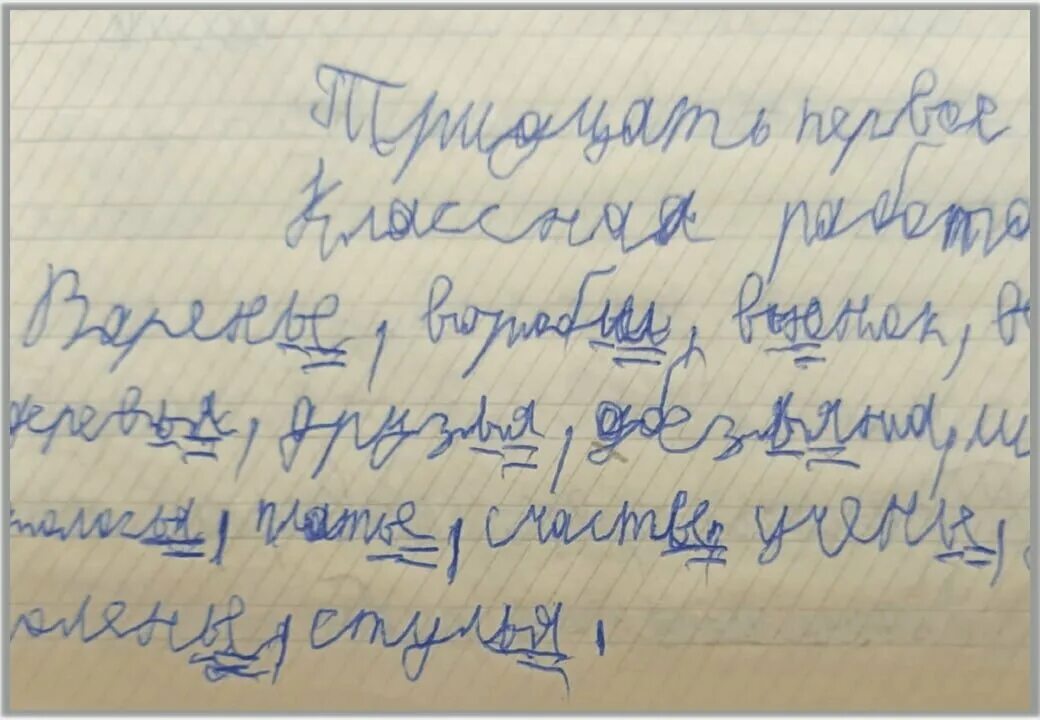 Тридцать первое
Классная работа
Варенье, воробьи, вьюнок,
деревья, друзья, обезьяна,
платье, счастье, ученье,
олень, стулья,